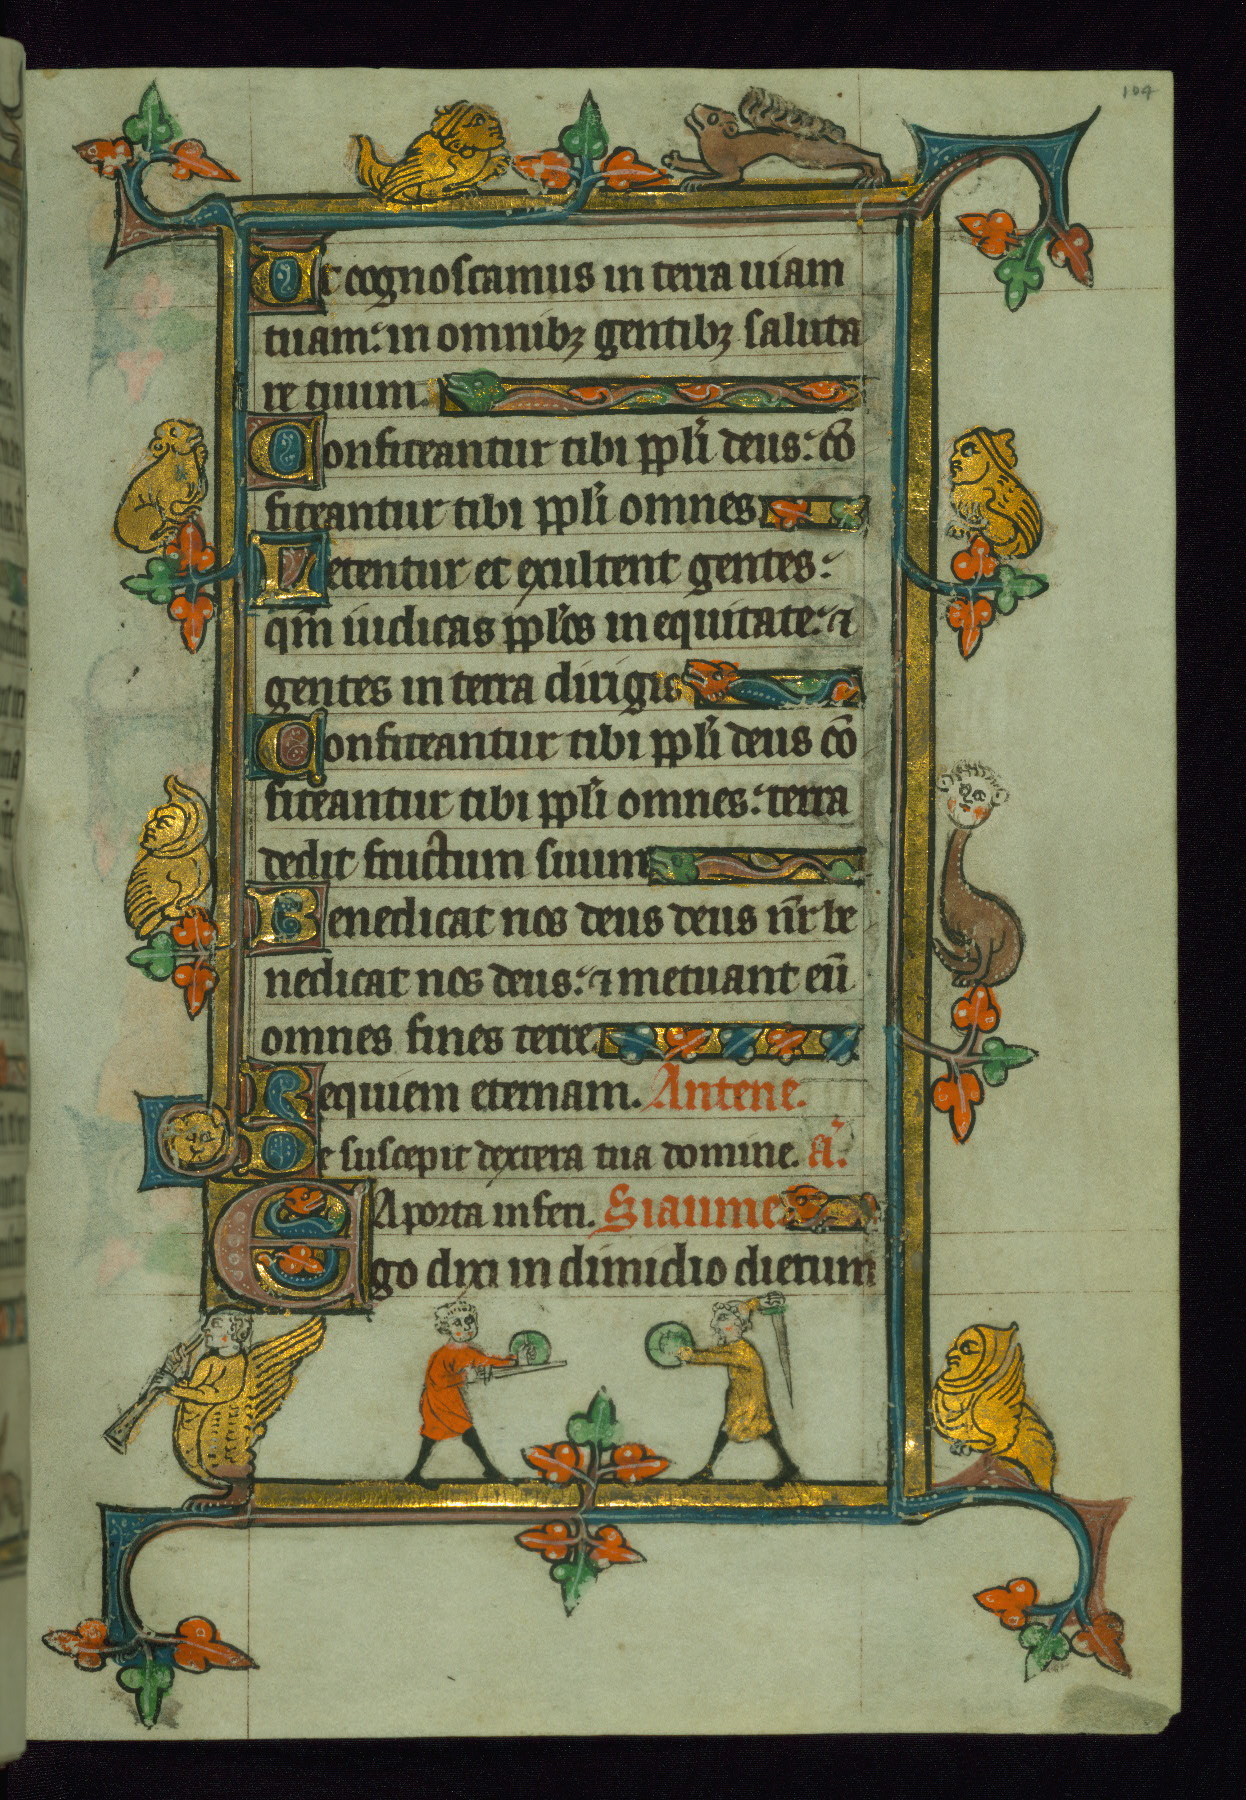 104
Ut cognoscamus in terra uiam
tuam: in omnibꝫ gentibꝫ saluta
re tuum.
Confiteantur tibi ppl̃i deus: cõ
fiteantur tibi ppl̃i omnes
Letentur et exultent gentes:
qm̃ iudicas ppl̃os in equitate: ⁊
gentes in terra dirigis
Confiteantur tibi ppl̃i deus cõ
fiteantur tibi ppl̃i omnes: terra
dedit fructum suum
Benedicat nos deus deus nr̃ be
nedicat nos deus: ⁊ metuant eũ
omnes fines terre
Requiem eternam. Antene.
De suscepit dextera tua domine. a͛.
A porta inferi. Siaume
Ego dixi in dimidio dierum